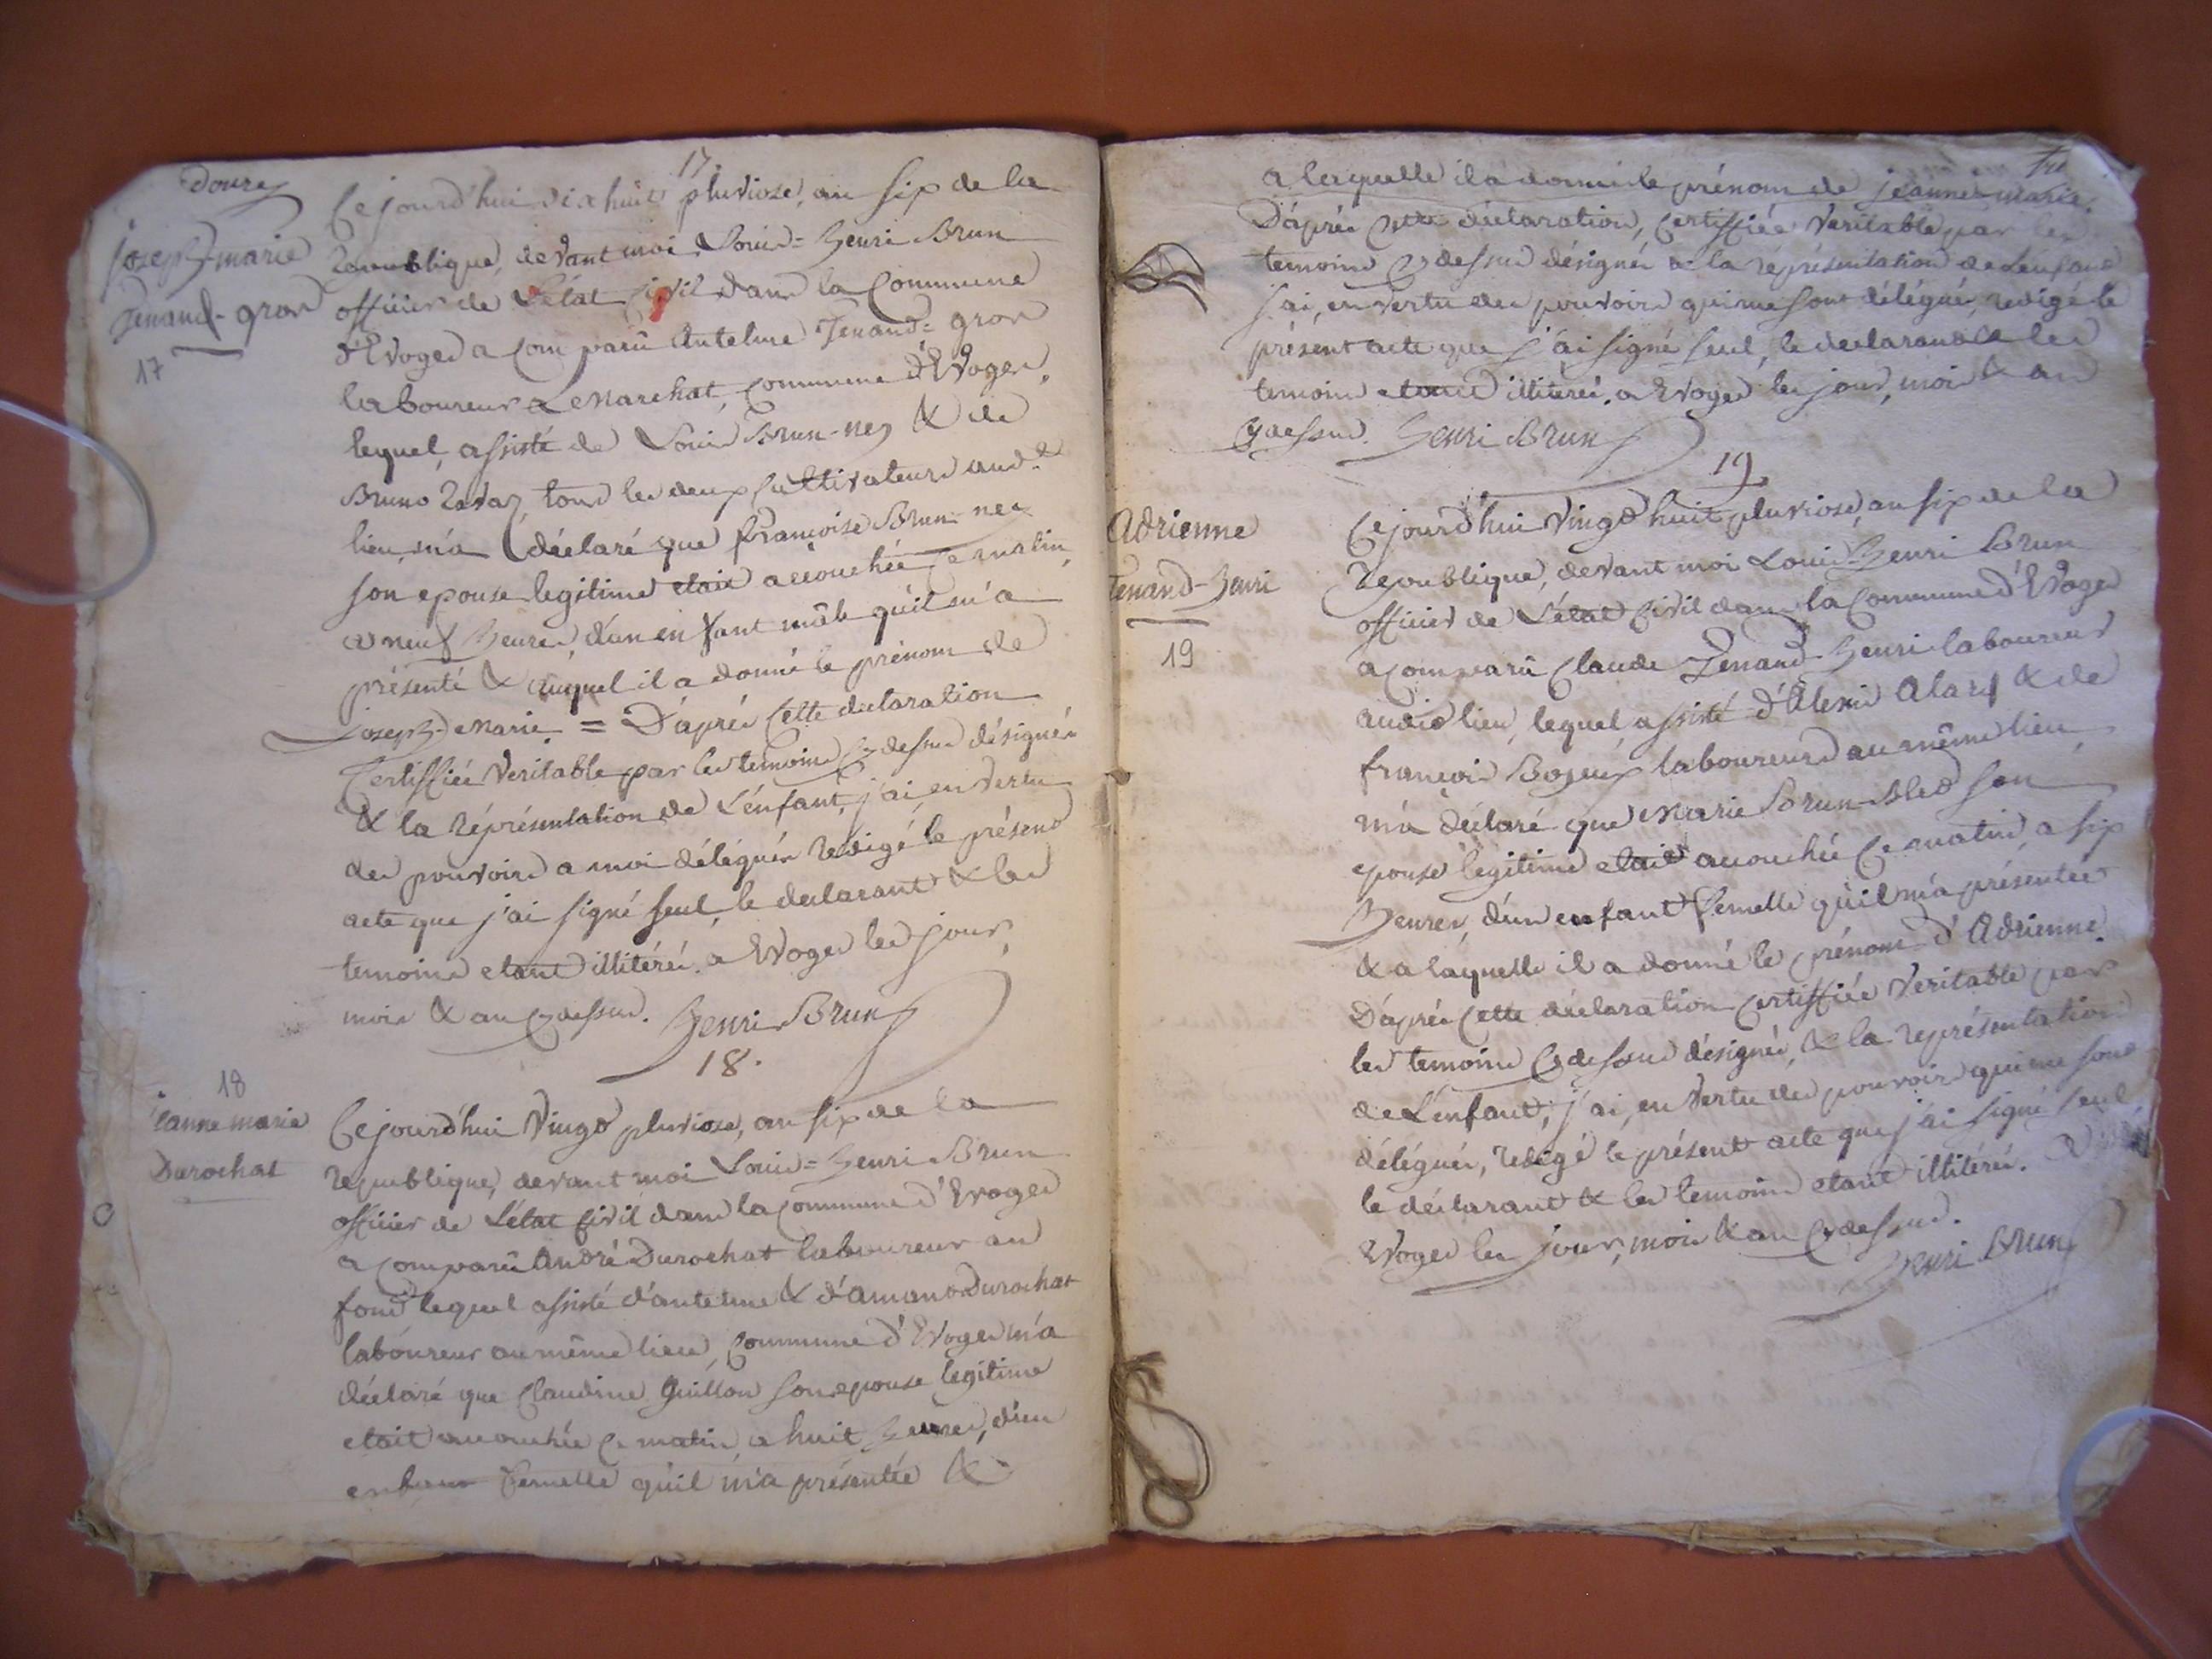 Douze
17.
joseph-marie
Tenand-gros
17
Cejourd'hui dix huit pluviose, an six de la
Republique, devant moi Louis=henri Brun
officier de L'état Civil dans la Commune
d'Evoges a comparû Antelme Tenand=gros
laboureur a Lemarchat, commune d'Evoges,
lequel, assisté de Louis Brun-nez & de
Bruno Ravaz, tous les deux Cultivateurs aud.
lieu, m'a déclaré que françoise Brun-nez
son epouse legitime etait accouchée ce matin,
a neuf heures, d'un enfant mâle qu'il m'a
présenté & auquel il a donné le prénom de
joseph-Marie. = D'après Cette declaration
Certiffiée Veritable par les temoins Cydessus désignés
& la réprésentation de L'enfant, j'ai en vertu
des pouvoirs a moi délégués redigé le présent
acte que j'ai signé seul, le declarant & les
temoins etant illitérés. a Evoges les jour,
mois & an Cydessus. henri Brun
18.
18
jeanne marie
Durochat
Cejourd'hui Vingt pluviose, an six de la
republique, devant moi Louis=henri Brun
officier de L'état Civil dans la Commune d'Evoges
a comparû André Durochat laboureur au
fond, lequel assisté d'antelme & d'amand Durochat
laboureur au même lieu, Commune d'Evoges m'a
déclaré que Claudine Guillon son epouse legitime
etait accouchée ce matin, a huit heures, d'un
enfant femelle qu'il m'a présentée &
a laquelle il a donné le prénom de jeanne marie.
D'après Cette déclaration, Certiffiée Veritable par les
temoins Cydessus désignés & la réprésentation de L'enfant
j'ai, en vertu des pouvoirs qui me sont délégués, redigé le
présent acte que j'ai signé seul, le declarant & les
temoins etant illitérés. a Evoges les jour, mois & an
Cydessus. henri Brun
19.
Adrienne
Tenand-henri
19
Cejourd'hui Vingt huit pluviose, an six de la
Republique, devant moi Louis=henri Brun
officier de L'état Civil dans la Commune d'Evoges
a comparû Claude Tenand-henri laboureur
audit lieu, lequel assisté d'Alexis Alard & de
françois Bozeux laboureurs au même lieu,
m'a déclaré que Marie Brun-Bled son
epouse legitime etait accouchée ce matin, a six
heures, d'un enfant femelle qu'il m'a présentée
& a laquelle il a donné le prénom d'Adrienne.
D'après Cette déclaration Certiffiée Veritable par
les temoins Cydessus désignés, & la représentation
de L'enfant, j'ai, en Vertu des pouvoirs qui me sont
délégués, redigé le présent acte que j'ai signé seul,
le déclarant & les temoins etant illitérés. a
Evoges les jour, mois & an Cydessus.
henri Brun